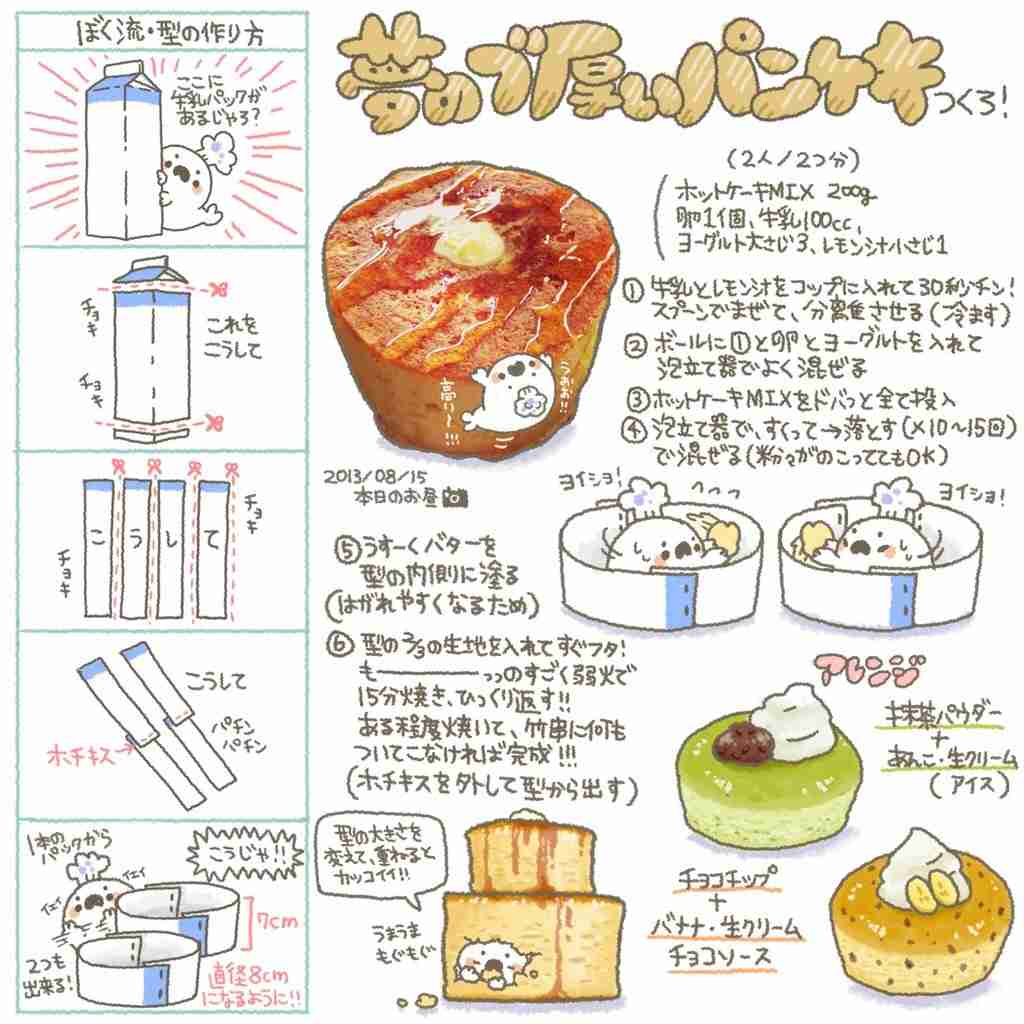 ぼく流・型の作り方
ここに
牛乳パックが
あるじゃろ?
チョキ
チョキ
これを
こうして
チョキ
チョキ
こ
う
し
て
こうして
パチン
パチン
ホチキス
1本の
パックから
こうじゃ!!
イエイ
イエイ
7cm
2つも
出来る!
直径8cm
になるように!!
夢のブ厚いパンケーキ
つくろ!
(2人/2つ分)
ホットケーキMIX 200g
卵1個、牛乳100cc、
ヨーグルト大さじ3、レモン汁小さじ1
うおお!!
高い〜!!!
2013/08/15
本日のお昼
①牛乳とレモン汁をコップに入れて30秒チン!
スプーンでまぜて、分離させる(冷ます)
②ボールに①と卵とヨーグルトを入れて
泡立て器でよく混ぜる
③ホットケーキMIXをドバっと全て投入
④泡立て器で、すくって→落とす(×10〜15回)
で混ぜる(粉々がのこっててもOK)
ヨイショ!
ヨイショ!
⑤うすーくバターを
型の内側に塗る
(はがれやすくなるため)
⑥型の2/3の生地を入れてすぐフタ!
も―――っっのすごく弱火で
15分焼き、ひっくり返す!!
ある程度焼いて、竹串に何も
ついてこなければ完成!!!
(ホチキスを外して型から出す)
型の大きさを
変えて、重ねると
カッコイイ!!
うまうま
もぐもぐ
アレンジ
抹茶パウダー
+
あんこ・生クリーム
(アイス)
チョコチップ
+
バナナ・生クリーム
チョコソース